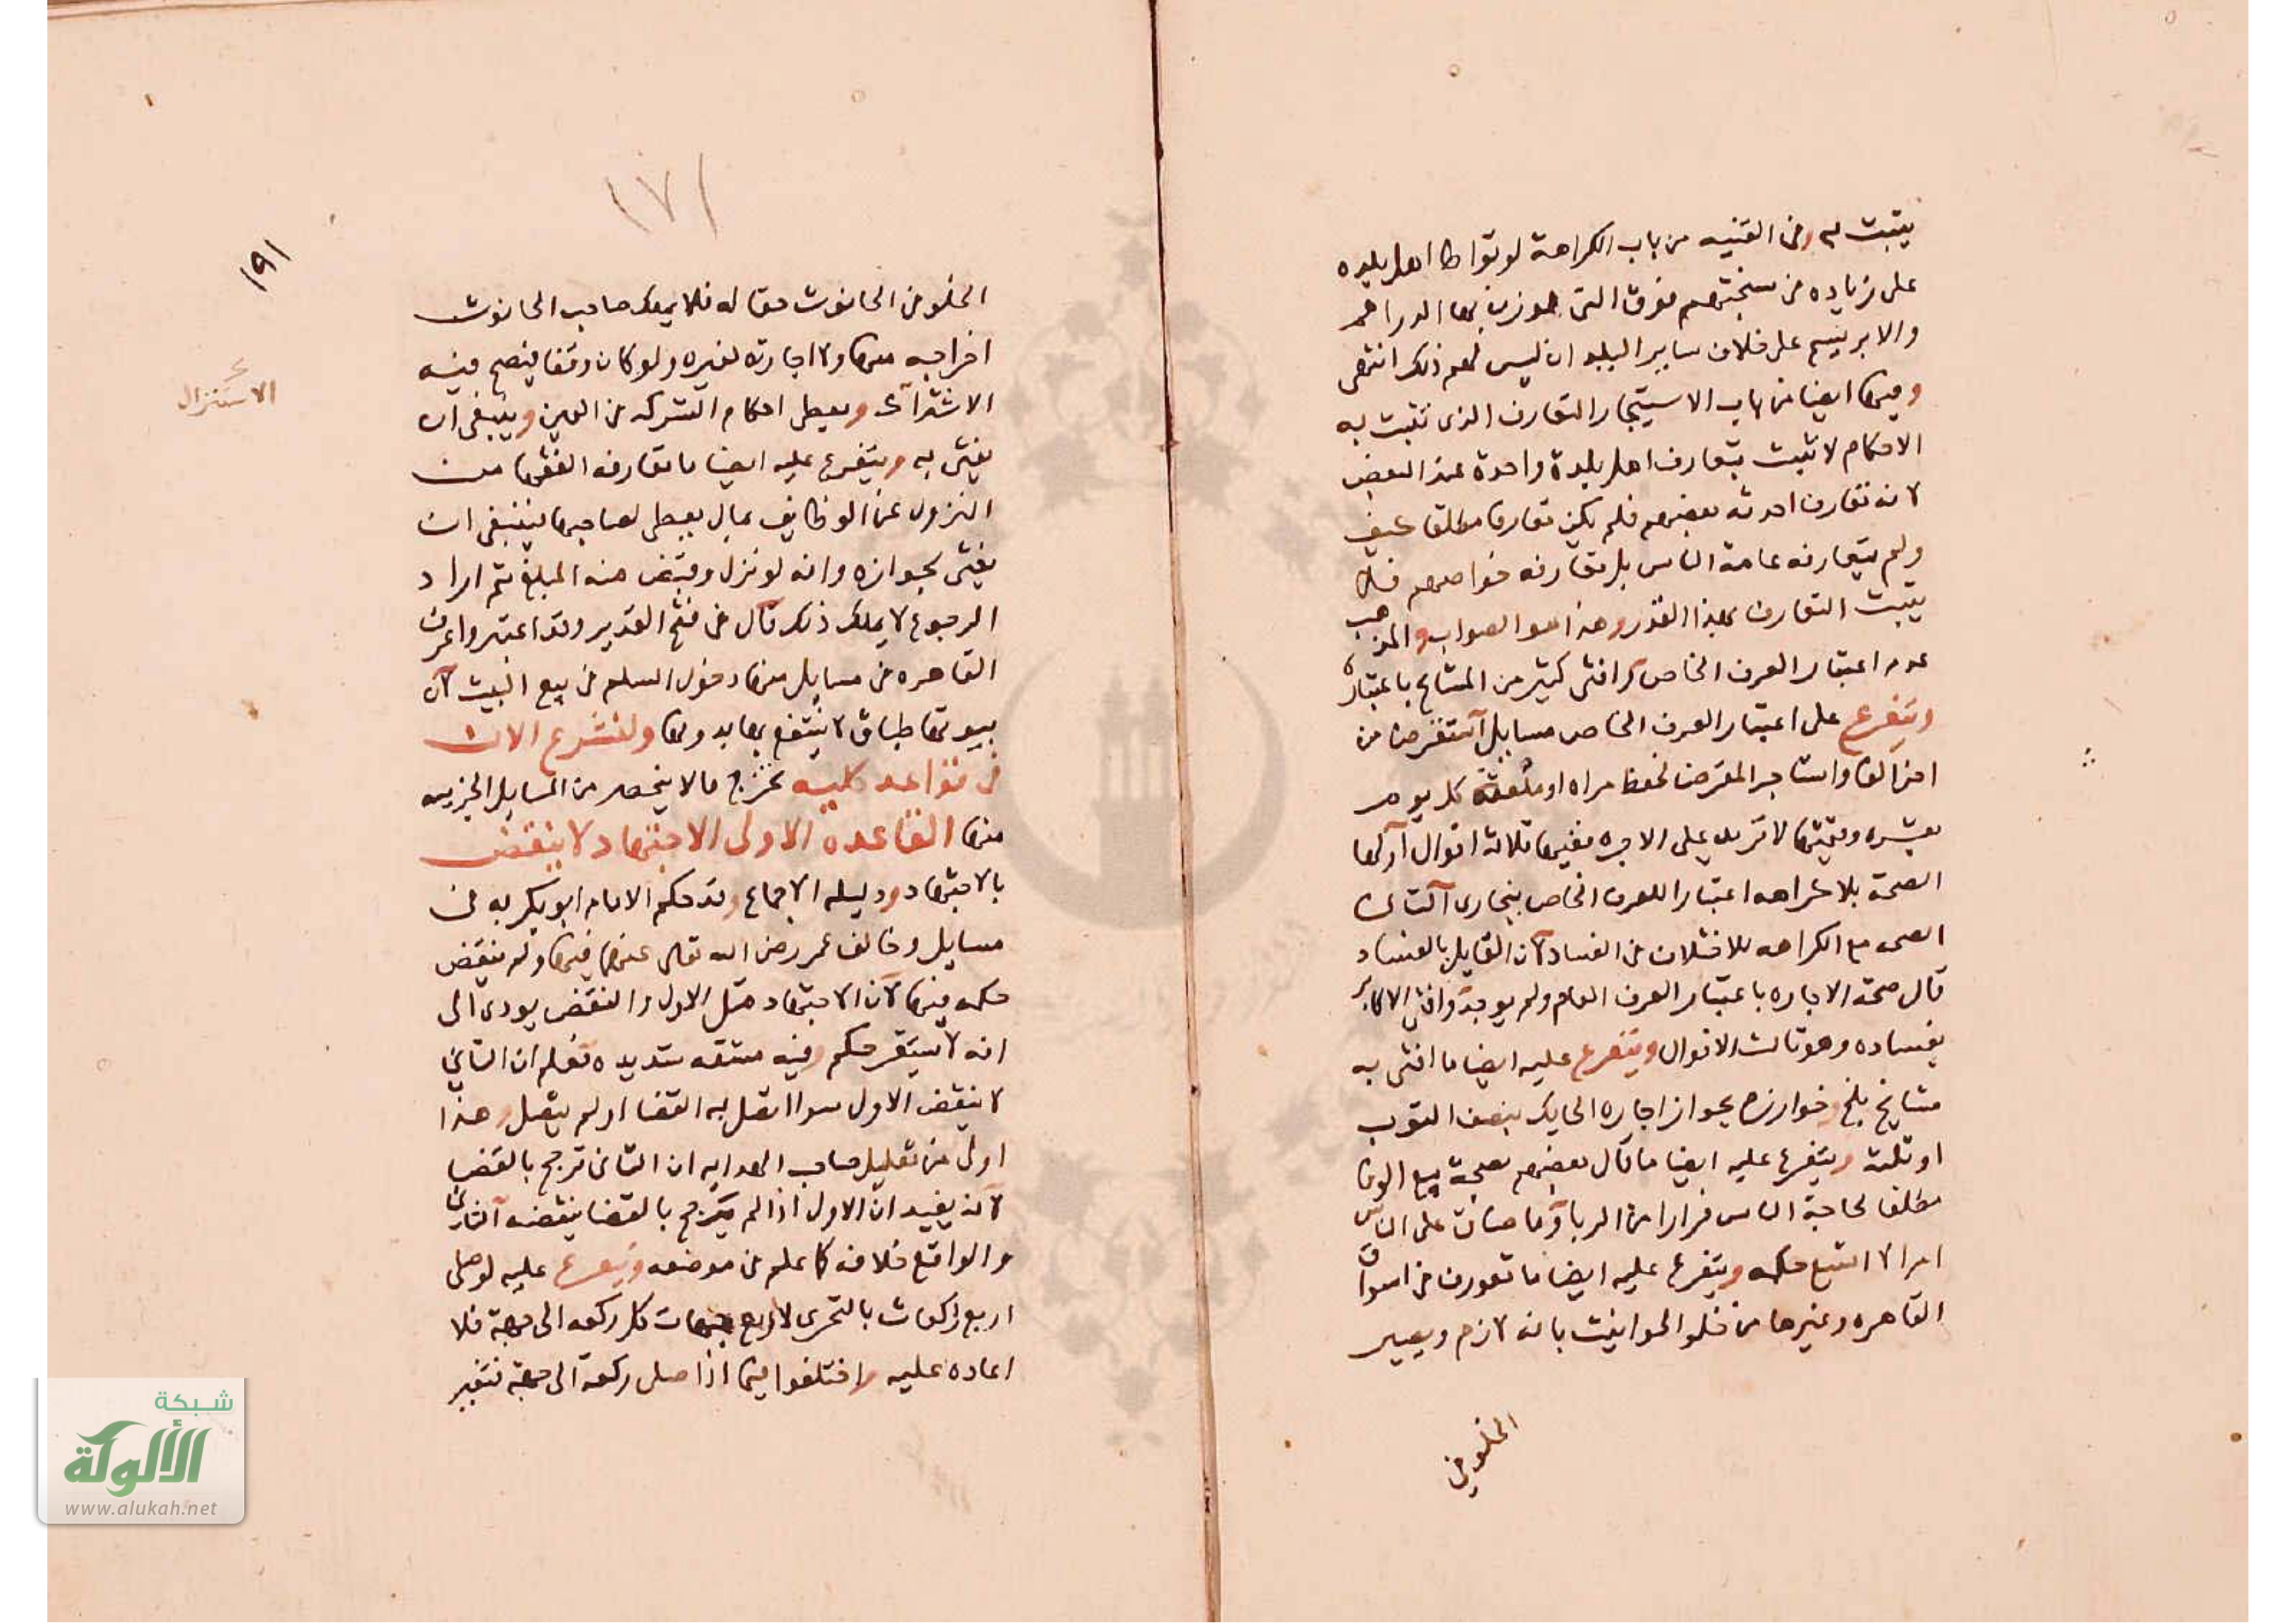 يثبت له وفي القنيه من باب الكراهة لو تواطا اهل بلده
على زياده في سنجتهم فوق التي يوزن بها الدراهم
والابريسم على خلاف ساير البلد ان ليس لهم ذلك انتهى
وفيها ايضا من باب الاستيجار التعارف الذى تثبت به
الاحكام لا تثبت بتعارف اهل بلدة واحدة عند البعض
لانه تعارف احدثه بعضهم فلم يكن تعارفا مطلقا كيف
ولم يتعارفه عامة الناس بل تعارفه خواصهم فلا
يثبت التعارف بهذا القدر وهذا هو الصواب والمذهب
عدم اعتبار العرف الخاص لكن افتى كثير من المشايخ باعتباره
ويتفرع على اعتبار العرف الخاص مسايل استقرض من
اخر الفا واستاجر المقرض لحفظ مراه او ملعقة كل يوم
بعشره وقيمتها لا تزيد على الاجره ففيها ثلاثة اقوال اولها
الصحة بلا كراهه اعتبارا للعرف الخاص ببخارى الثاني
الصحه مع الكراهه للاختلاف في الفساد لان القايل بالفساد
قال صحة الاجاره باعتبار العرف العام ولم يوجد وافتى الاكابر
بفساده وهو ثالث الاقوال ويتفرع عليه ايضا ما افتى به
مشايخ بلخ وخوارزم بجواز اجاره الحايك بنصف الثوب
او ثلثه ويتفرع عليه ايضا ما قال بعضهم بصحة بيع الوفا
مطلقا لحاجة الناس فرارا من الربا وما ضاق على الناس
امر الا اتسع حكمه ويتفرع عليه ايضا ما تعورف في اسواق
القاهره وغيرها من خلو الحوانيت بانه لازم ويصير
الخلو في
١٧١
١٩١
الخلو في الحانوت حقا له فلا يملك صاحب الحانوت
اخراجه منها ولا اجارته لغيره ولو كان وقفا فيصح فيه
الاشتراك ويعطى احكام الشركه في العين وينبغي ان
يفتى به ويتفرع عليه ايضا ما تعارفه الفقها من
النزول عن الوظايف بمال يعطى لصاحبها فينبغي ان
يفتى بجوازه وانه لو نزل وقبض منه المبلغ ثم اراد
الرجوع لا يملك ذلك قال في فتح القدير وقد اعتبروا عرف
القاهره في مسايل منها دخول السلم في بيع البيت لان
بيوتها طباق لا ينتفع بها بدونها ولنشرع الان
في قواعد كليه تخرج ما لا ينحصر من المسايل الجزييه
منها القاعده الاولى الاجتهاد لا ينقض
بالاجتهاد ودليله الاجماع وقد حكم الامام ابو بكر به في
مسايل وخالف عمر رضى الله تعالى عنهما فيها ولم ينقض
حكمه فيها لان الاجتهاد مثل الاول والنقض يودى الى
انه لا يستقر حكم وفيه مشقه شديده فعلم ان الثاني
لا ينقض الاول سوا اتصل به القضا او لم يتصل وهذا
اولى من تعليل صاحب الهدايه ان الثاني ترجح بالقضا
لانه يفيد ان الاول اذا لم يترجح بالقضا ينقضه الثاني
والواقع خلافه كما علم في موضعه ويتفرع عليه لو صلى
اربع ركعات بالتحرى لاربع جهات كل ركعه الى جهة فلا
اعاده عليه واختلفوا فيما اذا صلى ركعة الى جهة فتغير
الاستنزال
شبكة
الألوكة
www.alukah.net